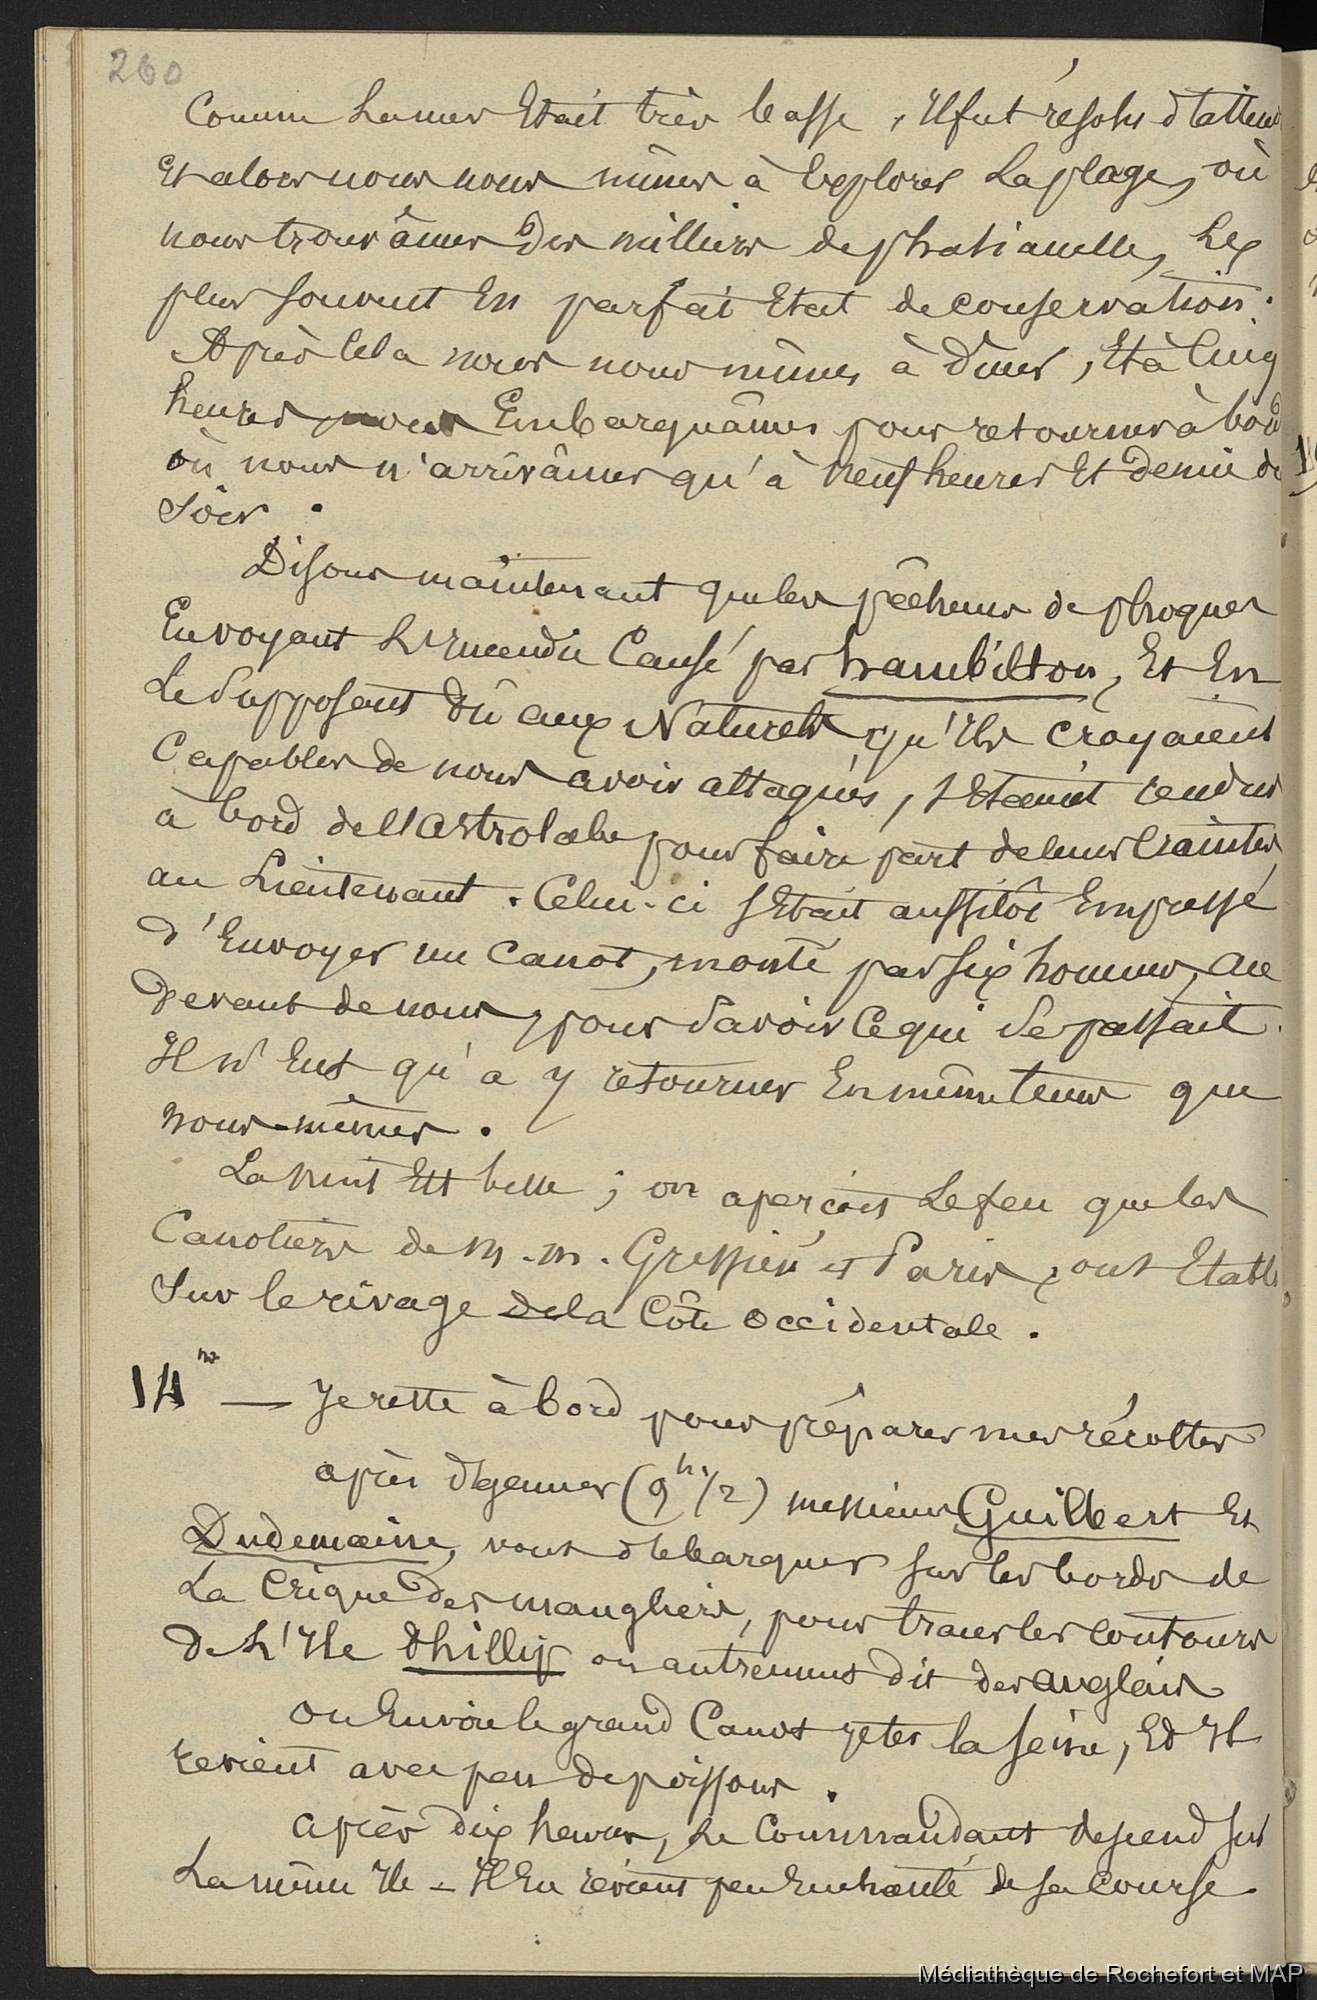 260
Comme La mer Etait très basse, Il fut résolu d'atten
Et alors nous nous mîmes à Explorer La plage, où
nous trouvâmes des milliers de phasianelle, Les
plus souvent En parfait Etat de conservation.
Après Cela nous nous mîmes à dîner, Et à Cinq
heures nous Embarquâmes pour retourner à bord
où nous n'arrivâmes qu'à neuf heures Et demie du
Soir.
Disons maintenant que les pêcheurs de phoques
En voyant L'Incendie Causé par hambilton, Et En
Le Supposant Dû aux Naturels qu'Ils croyaient
Capables de nous avoir attaqués, s'Etaient rendus
à bord de l'Astrolabe pour faire part de leurs Craintes
au Lieutenant. Celui-ci s'Etait aussitôt Empressé
d'Envoyer un Canot, monté par six hommes, au
devant de nous, pour Savoir Ce qui Se passait.
Il n'Eut qu'a y retourner En même tems que
nous-mêmes.
La nuit Est belle ; on aperçoit Le feu que les
Canotiers de M. M. Gressien et Paris, ont Etabli
Sur le rivage de la Côte occidentale.
14 — Je reste à bord pour préparer mes récoltes
après déjeuner (9h 1/2) messieurs Guilbert Et
Dudemaine, vont débarquer sur les bords de
La Crique des mangliers, pour tracer les contours
de L'Ile Phillip ou autrement dit des anglais
on Envoie le grand Canot jeter la seine, Et Il
revient avec peu de poissons.
après dix heures, Le Commandant descend sur
La même Ile - Il En revient peu Enchanté de sa Course
Médiathèque de Rochefort et MAP